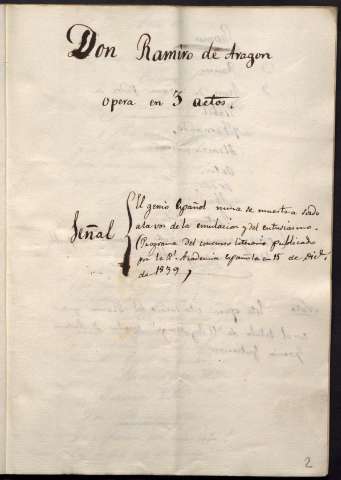 Don Ramiro de Aragon
opera en 3 actos.
Señal
El genio Español nunca se muestra sordo
a la voz de la emulacion y del entusiasmo.
(Programa del concurso literario publicado
por la Rl. Academia española en 15 de Dicbre.
de 1839)
2